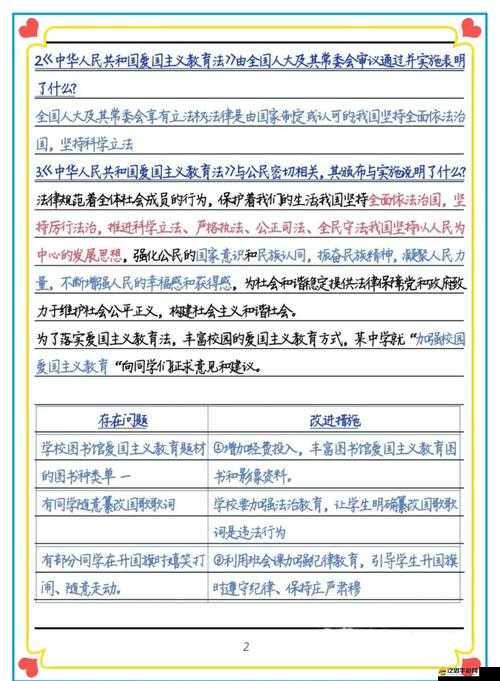 2.《中华人民共和国爱国主义教育法》由全国人大及其常委会审议通过并实施表明
了什么?
全国人大及其常委会享有立法权法律是由国家制定或认可的我国坚持全面依法治
国，坚持科学立法
3.《中华人民共和国爱国主义教育法》与公民密切相关，其颁布与实施说明了什么?
法律规范着全体社会成员的行为，保护着我们的生活我国坚持全面依法治国，坚
持厉行法治，推进科学立法、严格执法、公正司法、全民守法我国坚持以人民为
中心的发展思想，强化公民的国家意识和民族认同，振奋民族精神，凝聚人民力
量，不断增强人民的幸福感和获得感，为社会和谐稳定提供法律保障党和政府致
力于维护社会公平正义，构建社会主义和谐社会。
为了落实爱国主义教育法，丰富校园的爱国主义教育方式，某中学就“加强校园
爱国主义教育“向同学们征求意见和建议。
存在问题 改进措施
学校图书馆爱国主义教育题材 ①增加经费投入，丰富图书馆爱国主义教育图
的图书种类单一 书和影像资料。
有同学随意纂改国歌歌词 学校要加强法治教育，让学生明确纂改国歌歌
词是违法行为
有部分同学在升国旗时嬉笑打 ②利用班会课加强纪律教育，引导学生升国旗
闹、随意走动。 时遵守纪律、保持庄严肃穆
2